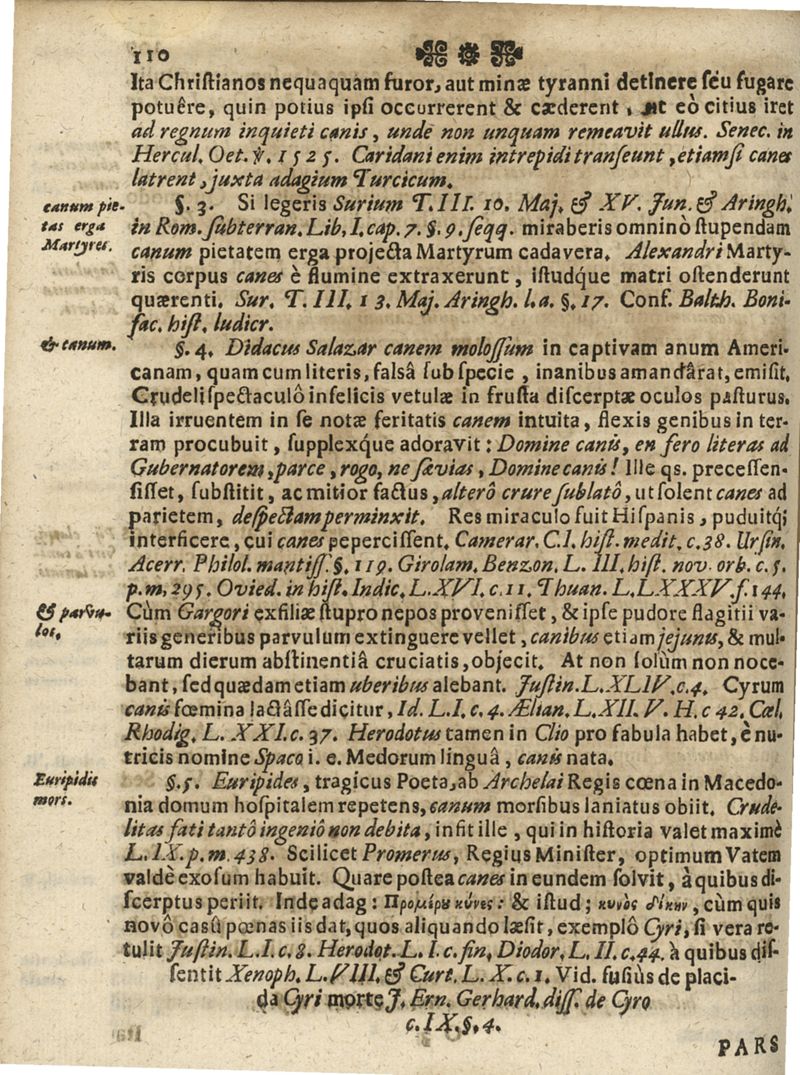 110
Ita Christianos nequaquam furor, aut minæ tyranni detinere seu fugare
potuêre, quin potius ipsi occurrerent & cæderent, ut eò citius iret
ad regnum inquieti canis, unde non unquam remeavit ullus. Senec. in
Hercul. Oet. ℣. 1525. Caridani enim intrepidi transeunt, etiamsi canes
latrent, juxta adagium Turcicum.
canum pie-
tas erga
Martyres.
§. 3. Si legeris Surium T. III. 10. Maj. & XV. Jun. & Aringh.
in Rom. subterran. Lib, I. cap. 7. §. 9. seqq. miraberis omninò stupendam
canum pietatem erga projecta Martyrum cadavera. Alexandri Marty-
ris corpus canes è flumine extraxerunt, istudq́ue matri ostenderunt
quærenti. Sur. T. III. 13. Maj. Aringh. l. a. §. 17. Conf. Balth. Boni-
fac. hist. ludicr.
& canum.
§. 4. Didacus Salazar canem molossum in captivam anum Ameri-
canam, quam cum literis, falsâ sub specie, inanibus amandârat, emisit.
Crudeli spectaculô infelicis vetulæ in frusta discerptæ oculos pasturus.
Illa irruentem in se notæ feritatis canem intuita, flexis genibus in ter-
ram procubuit, supplexq́ue adoravit: Domine canis, en fero literas ad
Gubernatorem, parce, rogo, ne sævias, Domine canis! Ille qs. precessen-
sisset, substitit, ac mitior factus, alterô crure sublatô, ut solent canes ad
parietem, despectam perminxit. Res miraculo fuit Hispanis, puduitq́;
interficere, cui canes pepercissent. Camerar. C. I. hist. medit. c. 38. Ursin.
Acerr. Philol. mantiss. §. 119. Girolam. Benzon. L. III. hist. nov. orb. c. 5.
p. m, 295. Ovied. in hist. Indic. L. XVI. c. 11. Thuan. L. LXXXV. f. 144.
& parvu-
los.
Cùm Gargori ex filiæ stupro nepos provenisset, & ipse pudore flagitii va-
riis generibus parvulum extinguere vellet, canibus etiam jejunis, & mul-
tarum dierum abstinentiâ cruciatis, objecit. At non solùm non noce-
bant, sed quædam etiam uberibus alebant. Justin. L. XLIV. c. 4. Cyrum
canis fœmina lactâsse dicitur, Id. L. I. c. 4. Ælian. L. XII. V. H. c 42. Cæl.
Rhodig. L. XXI. c. 37. Herodotus tamen in Clio pro fabula habet, è nu-
tricis nomine Spaco i. e. Medorum linguâ, canis nata.
Euripidis
mors.
§. 5. Euripides, tragicus Poeta, ab Archelai Regis cœna in Macedo-
nia domum hospitalem repetens, canum morsibus laniatus obiit. Crude-
litas fati tantô ingeniô non debita, infit ille, qui in historia valet maximè
L. IX. p. m. 438. Scilicet Promerus, Regius Minister, optimum Vatem
valdè exosum habuit. Quare postea canes in eundem solvit, à quibus di-
scerptus periit. Inde adag: Προμέρȣ κύνες: & istud; κυνὸς δίκην, cùm quis
novô casû pœnas iis dat, quos aliquando læsit, exemplô Cyri, si vera re-
tulit Justin. L. I. c. 8. Herodot. L. I. c. fin, Diodor. L. II. c. 44. à quibus dis-
sentit Xenoph. L. VIII. & Curt. L. X. c. 1. Vid. fusiùs de placi-
da Cyri morte J. Ern. Gerhard. diss. de Cyro
c. IX. §. 4.
PARS